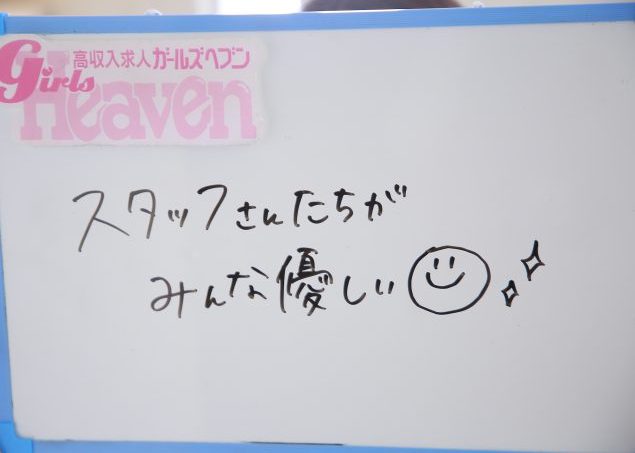 高収入求人ガールズヘブン
Girls
Heaven
スタッフさんたちが
みんな優しい